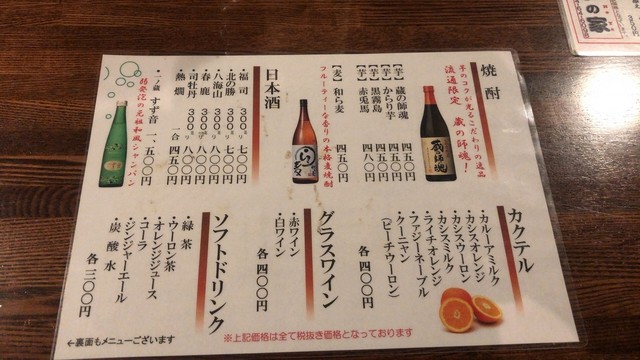 の家
焼酎
芋のコクが光るこだわりの逸品
流通限定 蔵の師魂!
【芋】蔵の師魂 四五〇円
【芋】からり芋 四五〇円
【芋】黒霧島 四五〇円
【芋】赤兎馬 四八〇円
【麦】和ら麦 四五〇円
フルーティーな香りの本格麦焼酎
蔵の師魂
日本酒
・福司 300㎖ 七〇〇円
・北の勝 300㎖ 七〇〇円
・八海山 300㎖ 八〇〇円
・春鹿 300㎖ 八〇〇円
・司牡丹 300㎖ 八〇〇円
・熱燗 一合 四五〇円
・一ノ蔵 すず音 一、五〇〇円
弱発泡の元祖和風シャンパン
カクテル
・カルーアミルク
・カシスオレンジ
・カシスウーロン
・カシスミルク
・ライチオレンジ
・ファジーネーブル
・クーニャン
(ピーチウーロン)
各 四〇〇円
グラスワイン
・赤ワイン
・白ワイン
各 四〇〇円
ソフトドリンク
・緑茶
・ウーロン茶
・オレンジジュース
・コーラ
・ジンジャーエール
・炭酸水
各 三〇〇円
※上記価格は全て税抜き価格となっております
←裏面もメニューございます